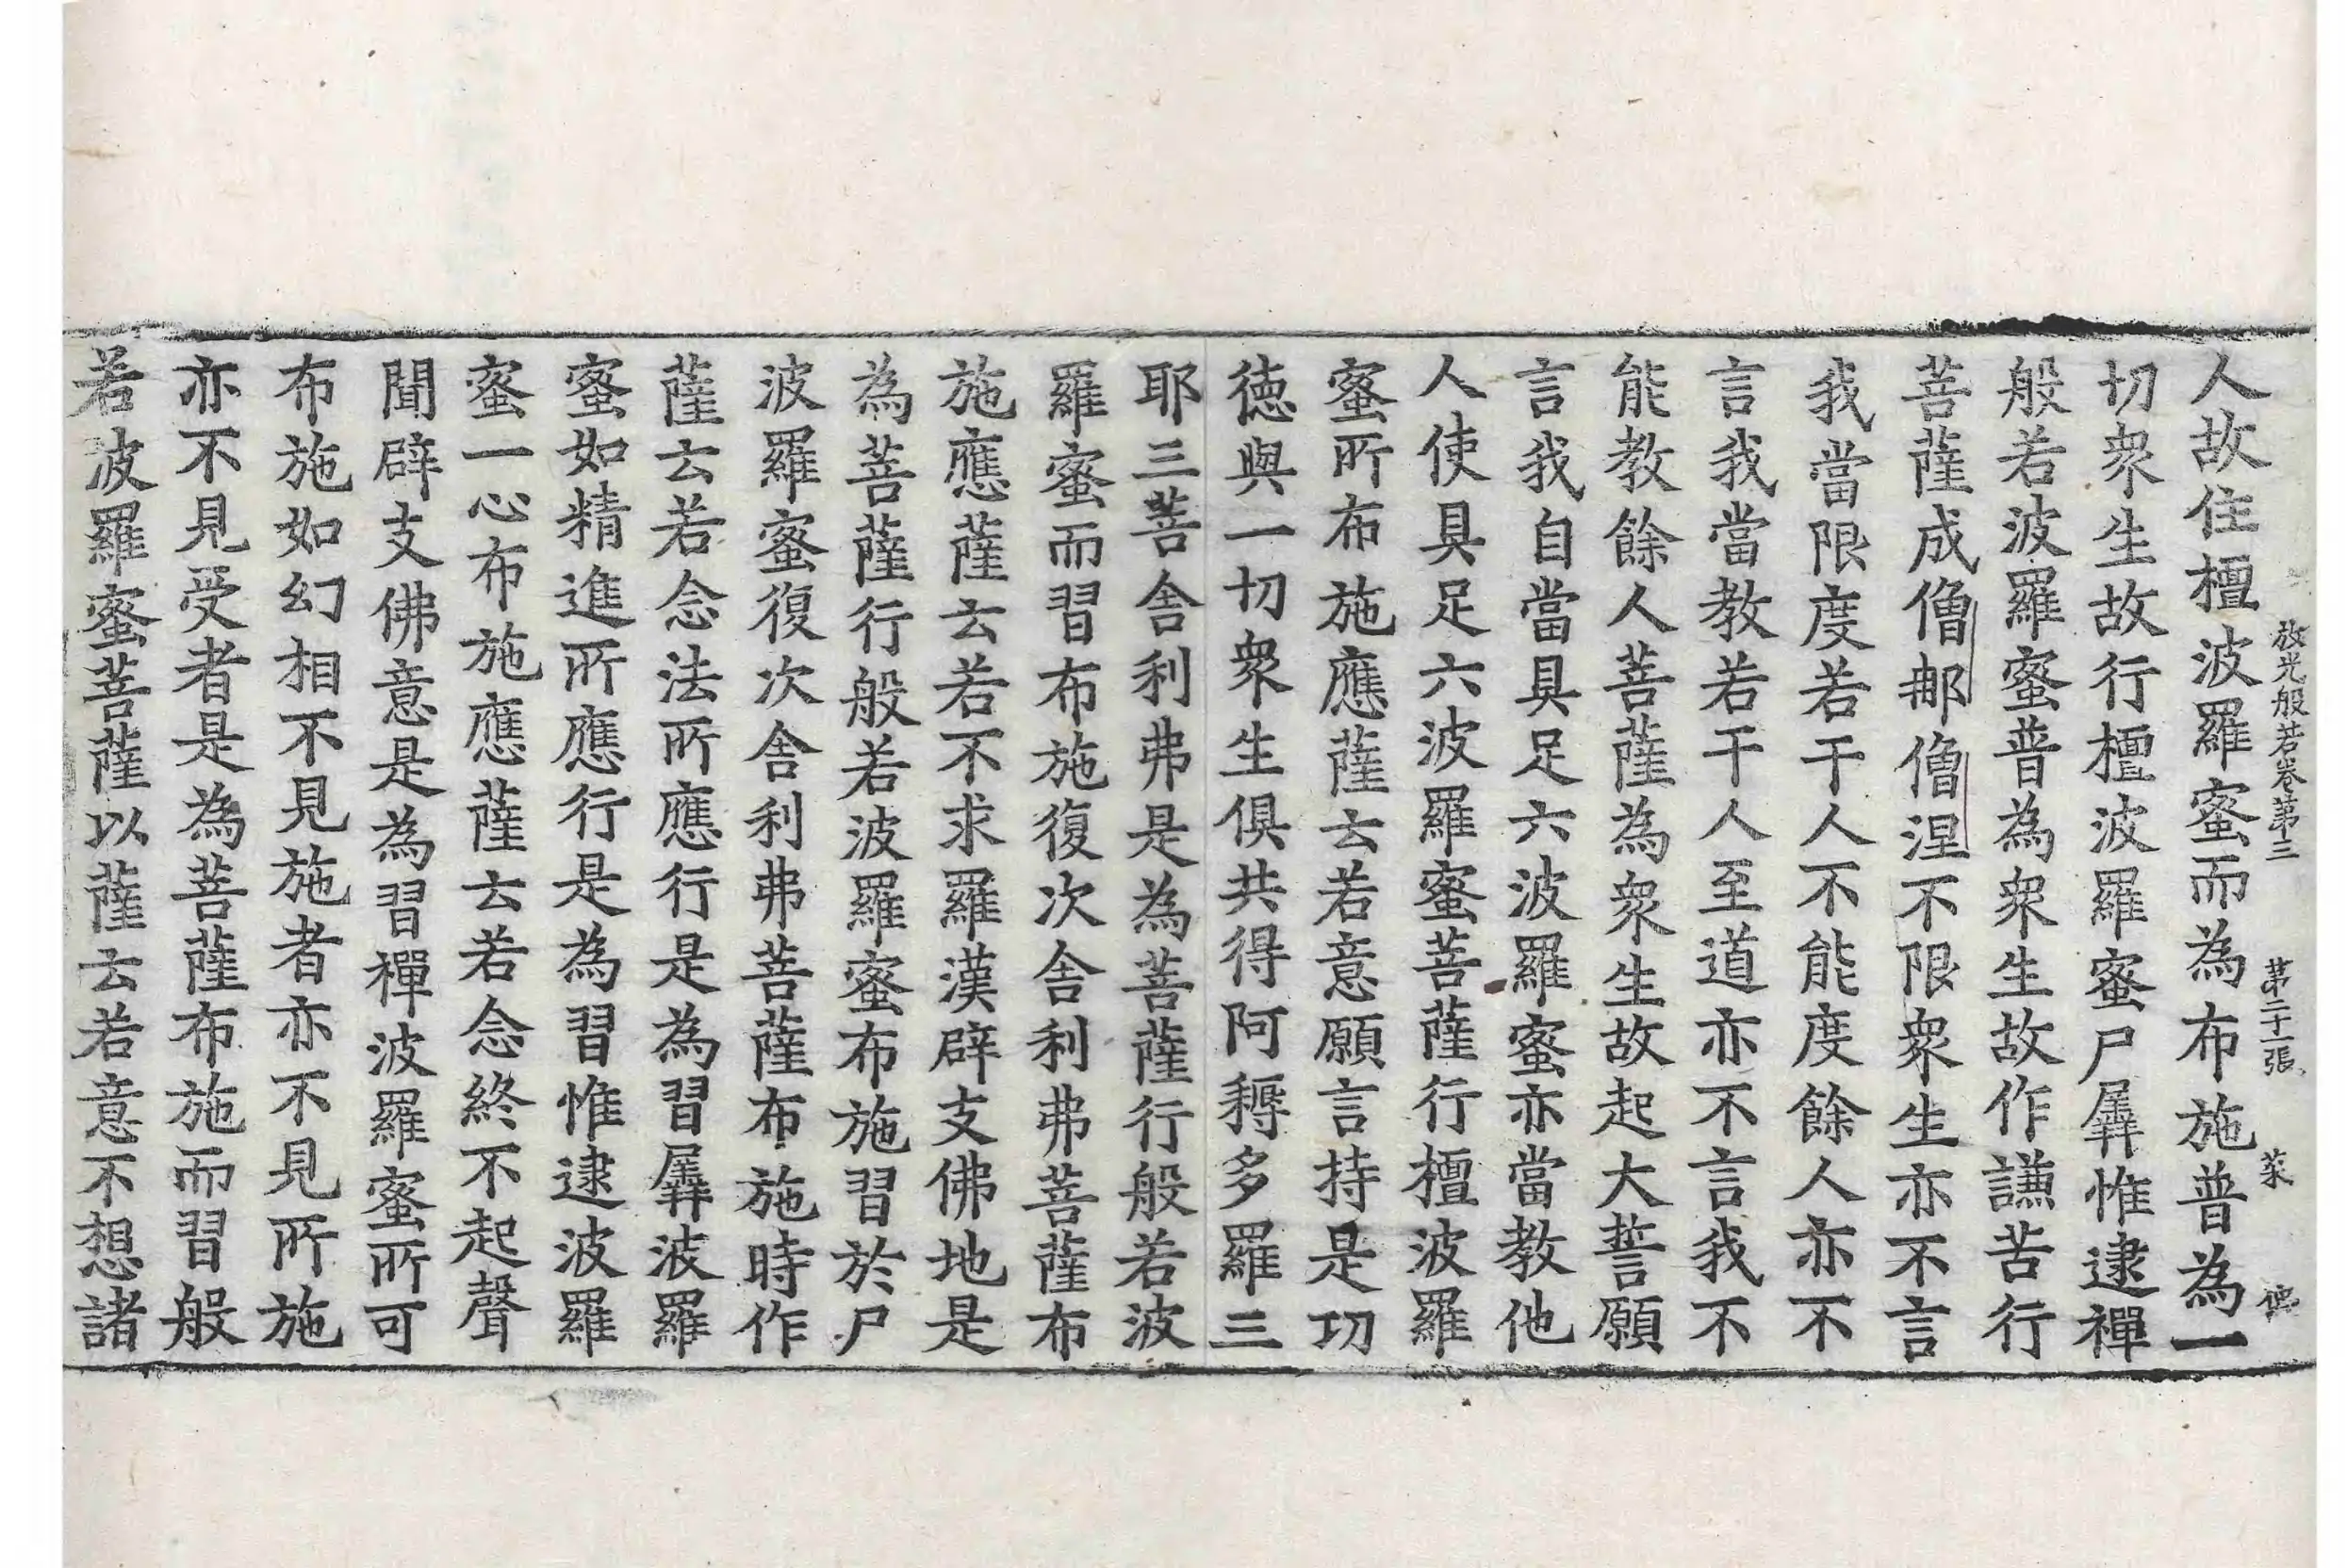 放光般若卷第三　第二十一張　菜
人故住檀波羅蜜而為布施普為一
切衆生故行檀波羅蜜尸羼惟逮禪
般若波羅蜜普為衆生故作謙苦行
菩薩成僧那僧涅不限衆生亦不言
我當限度若干人不能度餘人亦不
言我當教若干人至道亦不言我不
能教餘人菩薩為衆生故起大誓願
言我自當具足六波羅蜜亦當教他
人使具足六波羅蜜菩薩行檀波羅
蜜所布施應薩云若意願言持是功
德與一切衆生俱共得阿耨多羅三
耶三菩舍利弗是為菩薩行般若波
羅蜜而習布施復次舍利弗菩薩布
施應薩云若不求羅漢辟支佛地是
為菩薩行般若波羅蜜布施習於尸
波羅蜜復次舍利弗菩薩布施時作
薩云若念法所應行是為習羼波羅
蜜如精進所應行是為習惟逮波羅
蜜一心布施應薩云若念終不起聲
聞辟支佛意是為習禪波羅蜜所可
布施如幻相不見施者亦不見所施
亦不見受者是為菩薩布施而習般
若波羅蜜菩薩以薩云若意不想諸